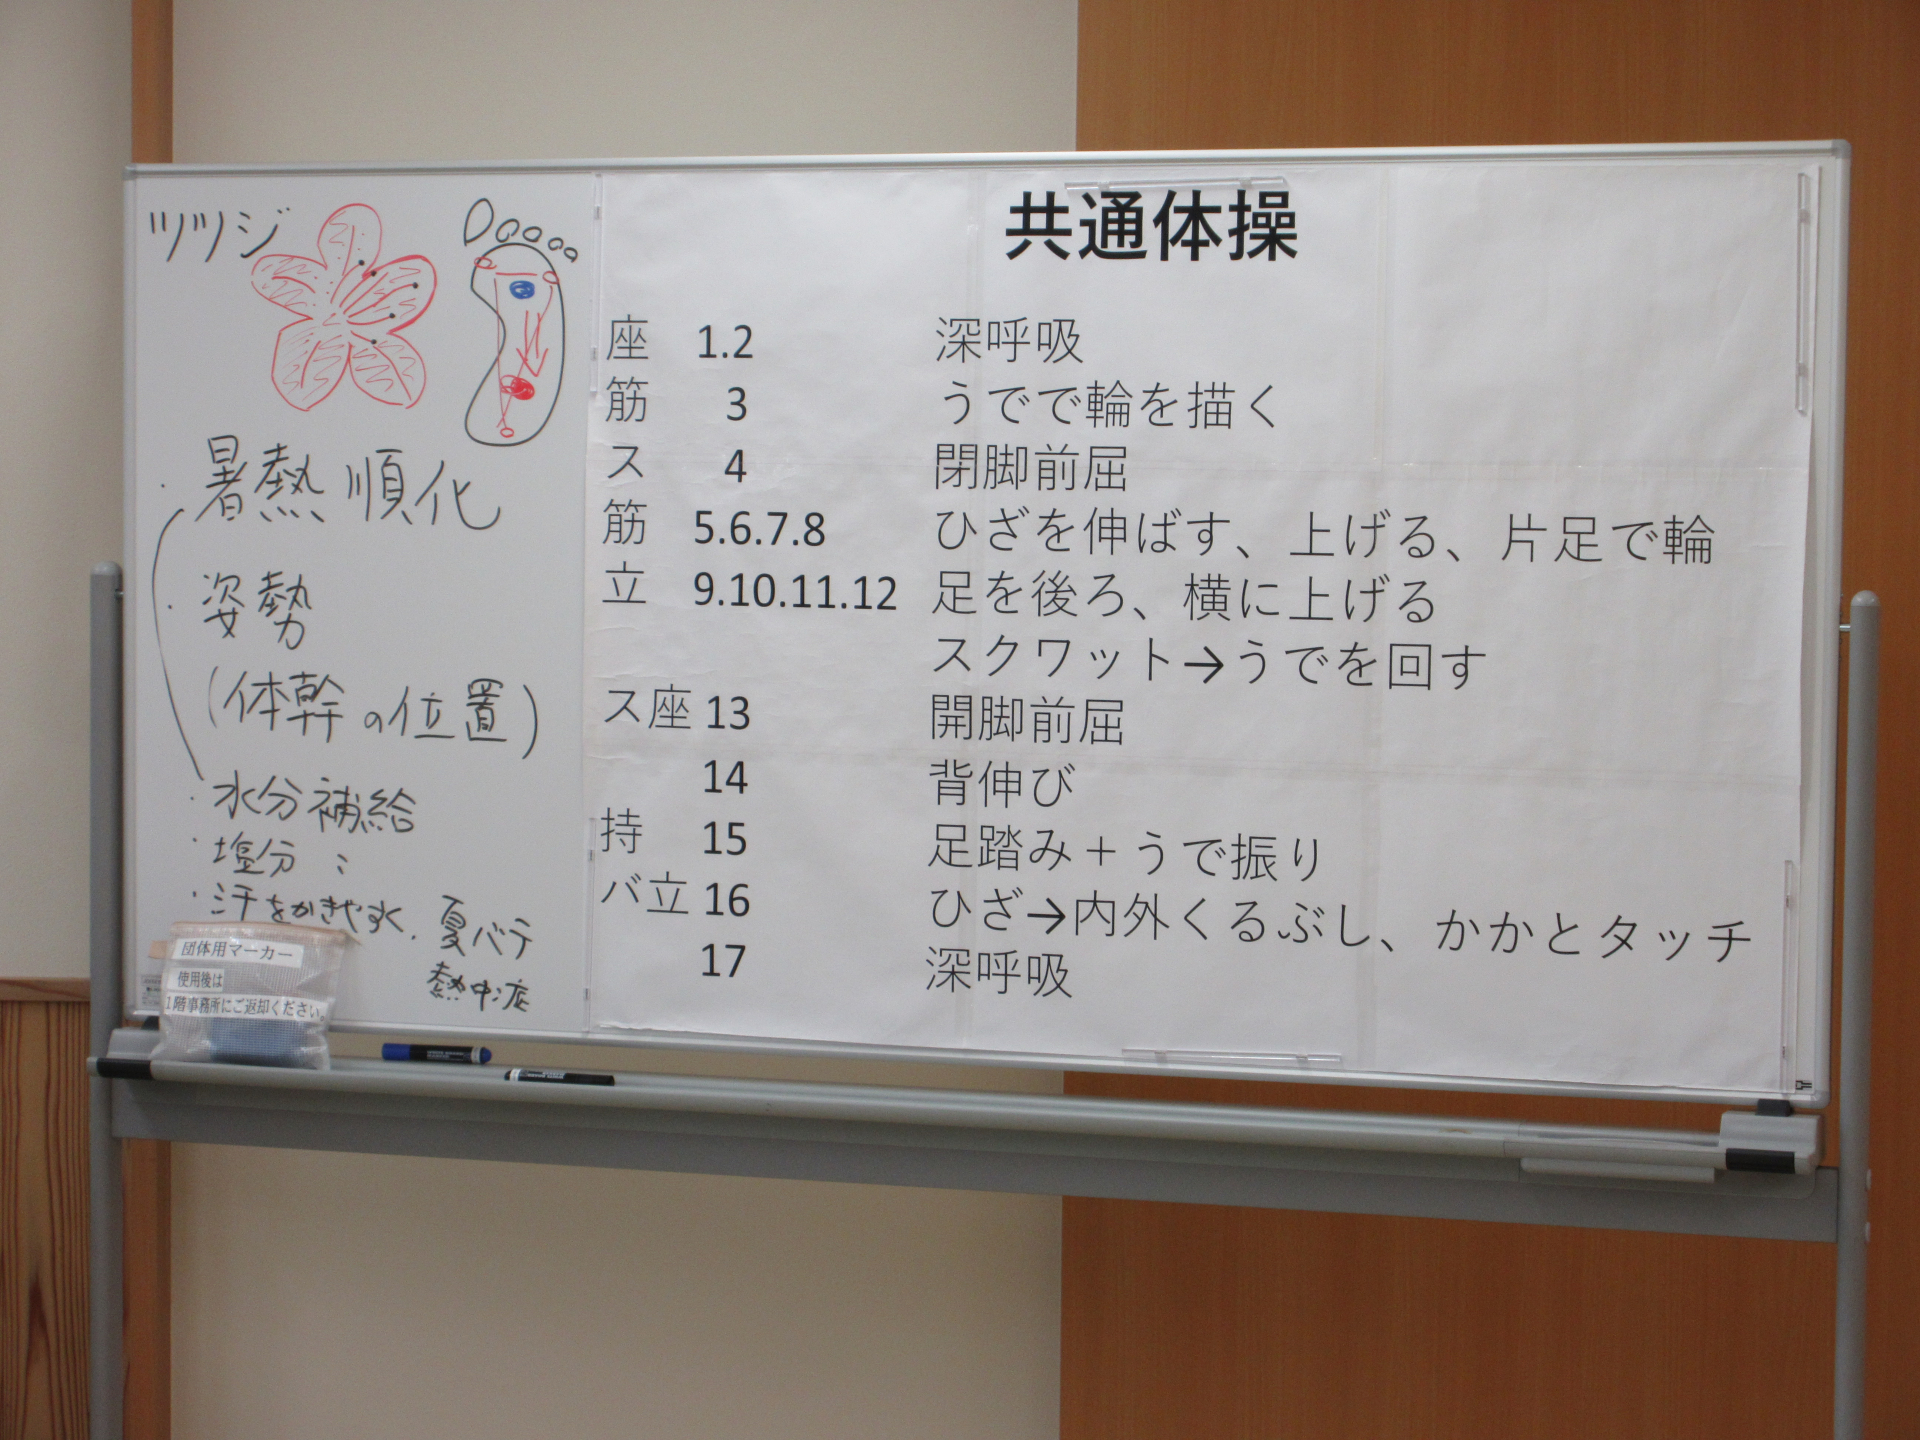 ツツジ
・暑熱順化
・姿勢
(体幹の位置)
・水分補給
・塩分 〃
・汗をかきやすく.
夏バテ
熱中症
団体用マーカー
使用後は
1階事務所にご返却ください。
共通体操
座 1.2 深呼吸
筋 3 うでで輪を描く
ス 4 閉脚前屈
筋 5.6.7.8 ひざを伸ばす、上げる、片足で輪
立 9.10.11.12 足を後ろ、横に上げる
スクワット→うでを回す
ス座 13 開脚前屈
14 背伸び
持 15 足踏み+うで振り
バ立 16 ひざ→内外くるぶし、かかとタッチ
17 深呼吸